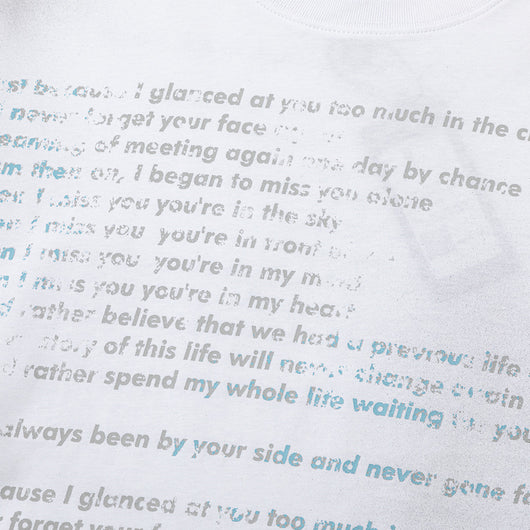 st because I glanced at you too much in the c
never forget your face
eaming of meeting again one day by chance
m then on, I began to miss you alone
I miss you you're in the sky
I miss you you're in front
n I miss you you're in my mind
n I miss you you're in my heart
d rather believe that we had a previous life
story of this life will never change again
d rather spend my whole life waiting for you
always been by your side and never gone fa
cause I glanced at you too much
forget your